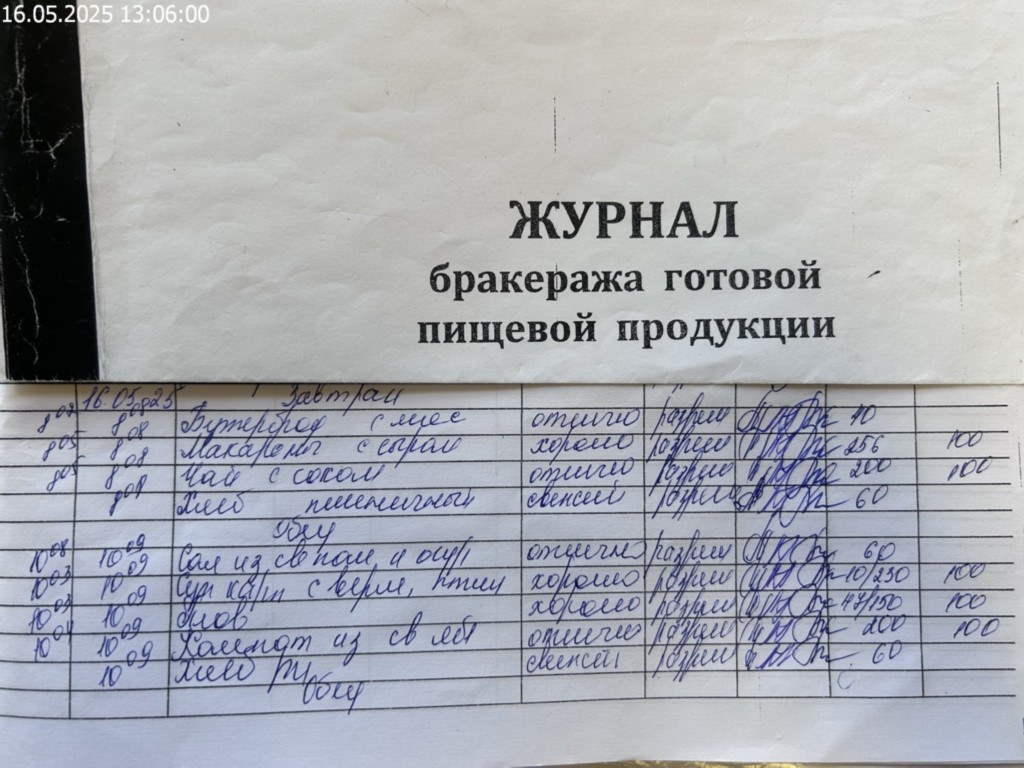 16.05.2025 13:06:00
ЖУРНАЛ
бракеража готовой
пищевой продукции
16.05.25 Завтрак
8 08 Бутерброд с отлично разреш 40
8 05 8 08 Макароны с сыром хорошо разреш 256 100
8 05 8 08 Чай с соком отлично разреш 200 100
8 08 Хлеб пшеничный свежий разреш 60
Обед
10 08 10 09 Сал из св пом и огур отлично разреш 60
10 03 10 09 Суп карт с верм, птиц хорошо разреш 10/250 100
10 03 10 09 Плов хорошо разреш 47/150 100
10 04 10 09 Компот из св ябл отлично разреш 200 100
10 09 Хлеб свежий разреш 60